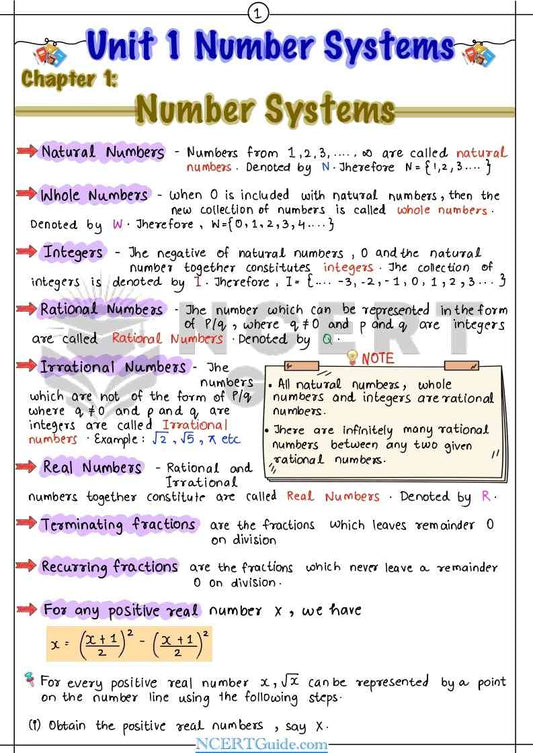 1
Unit 1 Number Systems
Chapter 1:
Number Systems
Natural Numbers - Numbers from 1,2,3,...., ∞ are called natural
numbers. Denoted by N. Therefore N = {1,2,3....}
Whole Numbers - When 0 is included with natural numbers, then the
new collection of numbers is called whole numbers.
Denoted by W. Therefore, W={0,1,2,3,4....}
Integers - The negative of natural numbers, 0 and the natural
number together constitutes integers. The collection of
integers is denoted by I. Therefore, I = {.... -3,-2,-1,0,1,2,3...}
Rational Numbers - The number which can be represented in the form
of P/q, where q ≠ 0 and p and q are integers
are called Rational Numbers. Denoted by Q.
NCERT
Irrational Numbers - The
numbers
which are not of the form of P/q
where q ≠ 0 and p and q are
integers are called Irrational
numbers. Example: √2, √5, π etc
NOTE
• All natural numbers, whole
numbers and integers are rational
numbers.
• There are infinitely many rational
numbers between any two given
rational numbers.
Real Numbers - Rational and
Irrational
numbers together constitute are called Real Numbers. Denoted by R.
Terminating fractions are the fractions which leaves remainder 0
on division
Recurring fractions are the fractions which never leave a remainder
0 on division.
For any positive real number x, we have
x = ((x+1)/2)² - ((x+1)/2)²
For every positive real number x, √x can be represented by a point
on the number line using the following steps.
(1) Obtain the positive real numbers, say x.
NCERTGuide.com